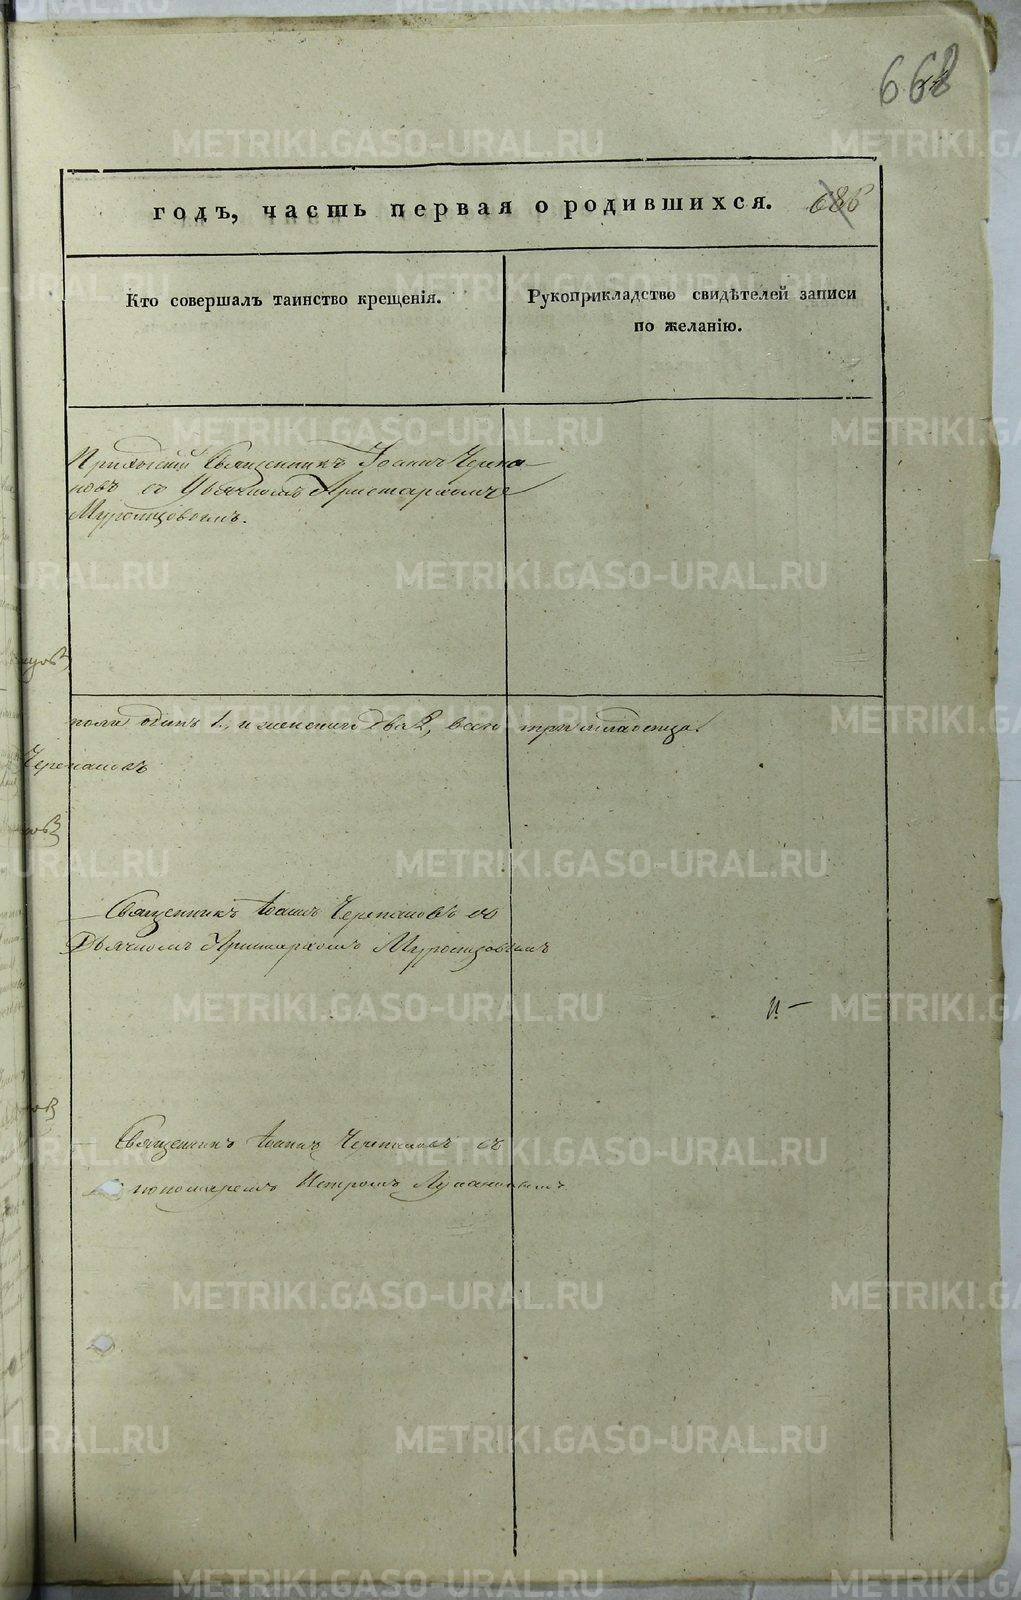 668
годъ, часть первая о родившихся. 686
Кто совершалъ таинство крещенія.
Рукоприкладство свидѣтелей записи
по желанію.
Приходскій Священникъ Іоаннъ Черепа
новъ съ Дьячкомъ Аристархомъ
Муромцовымъ.
пола одинъ 1, и женскаго два 2, всего три младенца.
Черепановъ
Священникъ Іоаннъ Черепановъ со
Дьячкомъ Аристархомъ Муромцовымъ
Священникъ Іоаннъ Черепановъ съ
пономаремъ Петромъ
METRIKI.GASO-URAL.RU